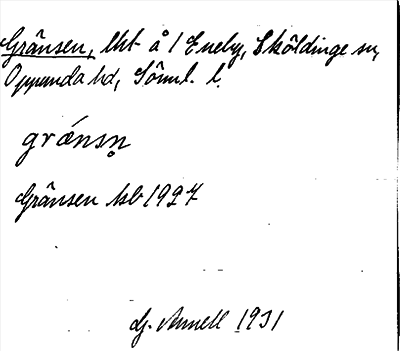 Gränsen, lht å 1 Eneby, Sköldinge sn,
Oppunda hd, Söml. l.
grä́nsn̥
Gränsen hsb 1927
G. Annell 1931